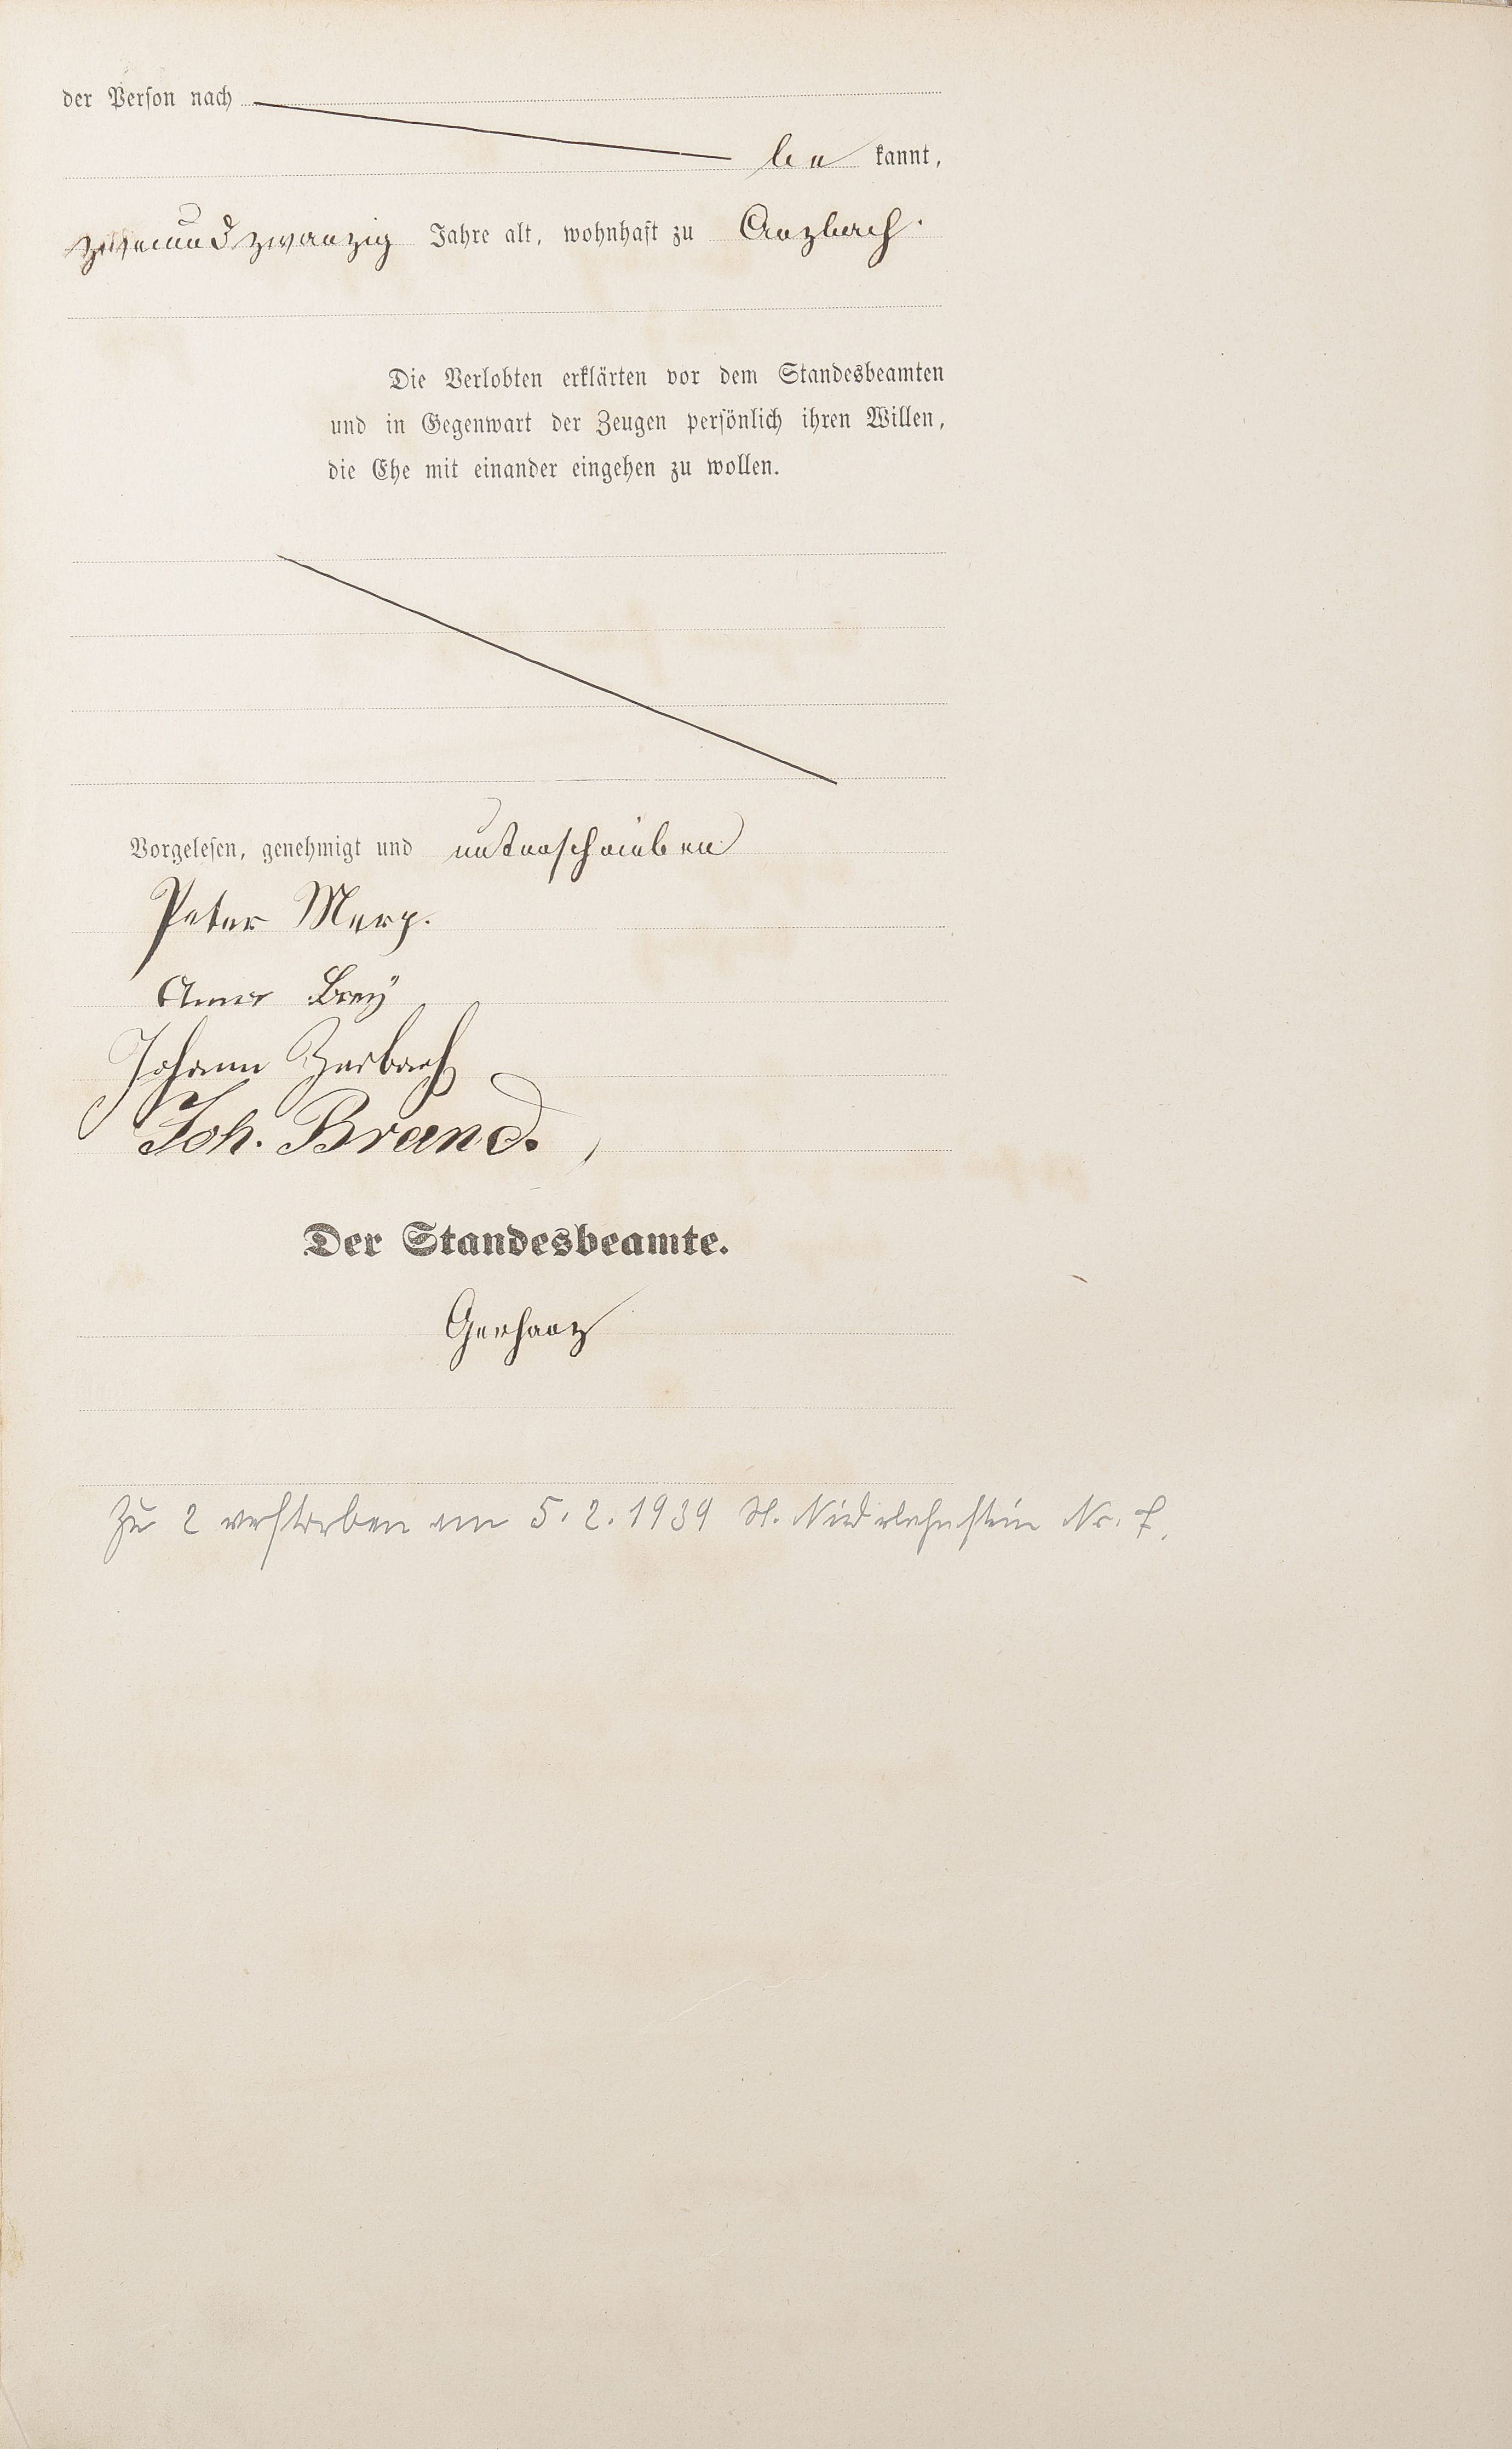 der Person nach
be kannt,
zweiundzwanzig Jahre alt, wohnhaft zu Arzbach.
Die Verlobten erklärten vor dem Standesbeamten
und in Gegenwart der Zeugen persönlich ihren Willen,
die Ehe mit einander eingehen zu wollen.
Vorgelesen, genehmigt und unterschrieben
Peter Merz.
Anna Brey
Johann Zerbach
Joh. Brand.
Der Standesbeamte.
Gerharz
Zu 2 verstorben am 5.2.1939 St. Niederlahnstein Nr. 7.